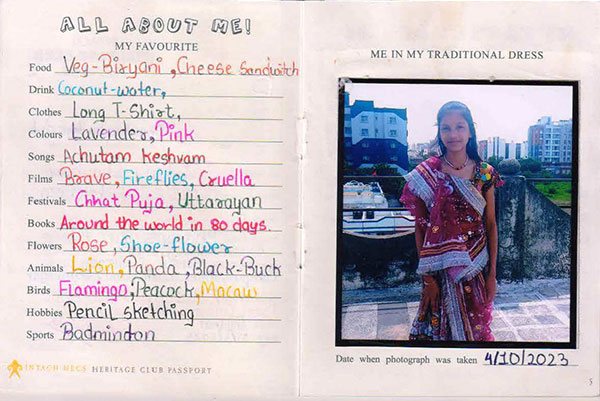 ALL ABOUT ME!
MY FAVOURITE
Food Veg-Biryani, Cheese Sandwitch
Drink Coconut-water,
Clothes Long T-Shirt,
Colours Lavender, Pink
Songs Achutam Keshvam
Films Brave, Fireflies, Cruella
Festivals Chhat Puja, Uttarayan
Books Around the world in 80 days.
Flowers Rose, Shoe-flower
Animals Lion, Panda, Black-Buck
Birds Flamingo, Peacock, Macaw
Hobbies Pencil Sketching
Sports Badminton
INTACH HECS HERITAGE CLUB PASSPORT
ME IN MY TRADITIONAL DRESS
Date when photograph was taken 4/10/2023
5